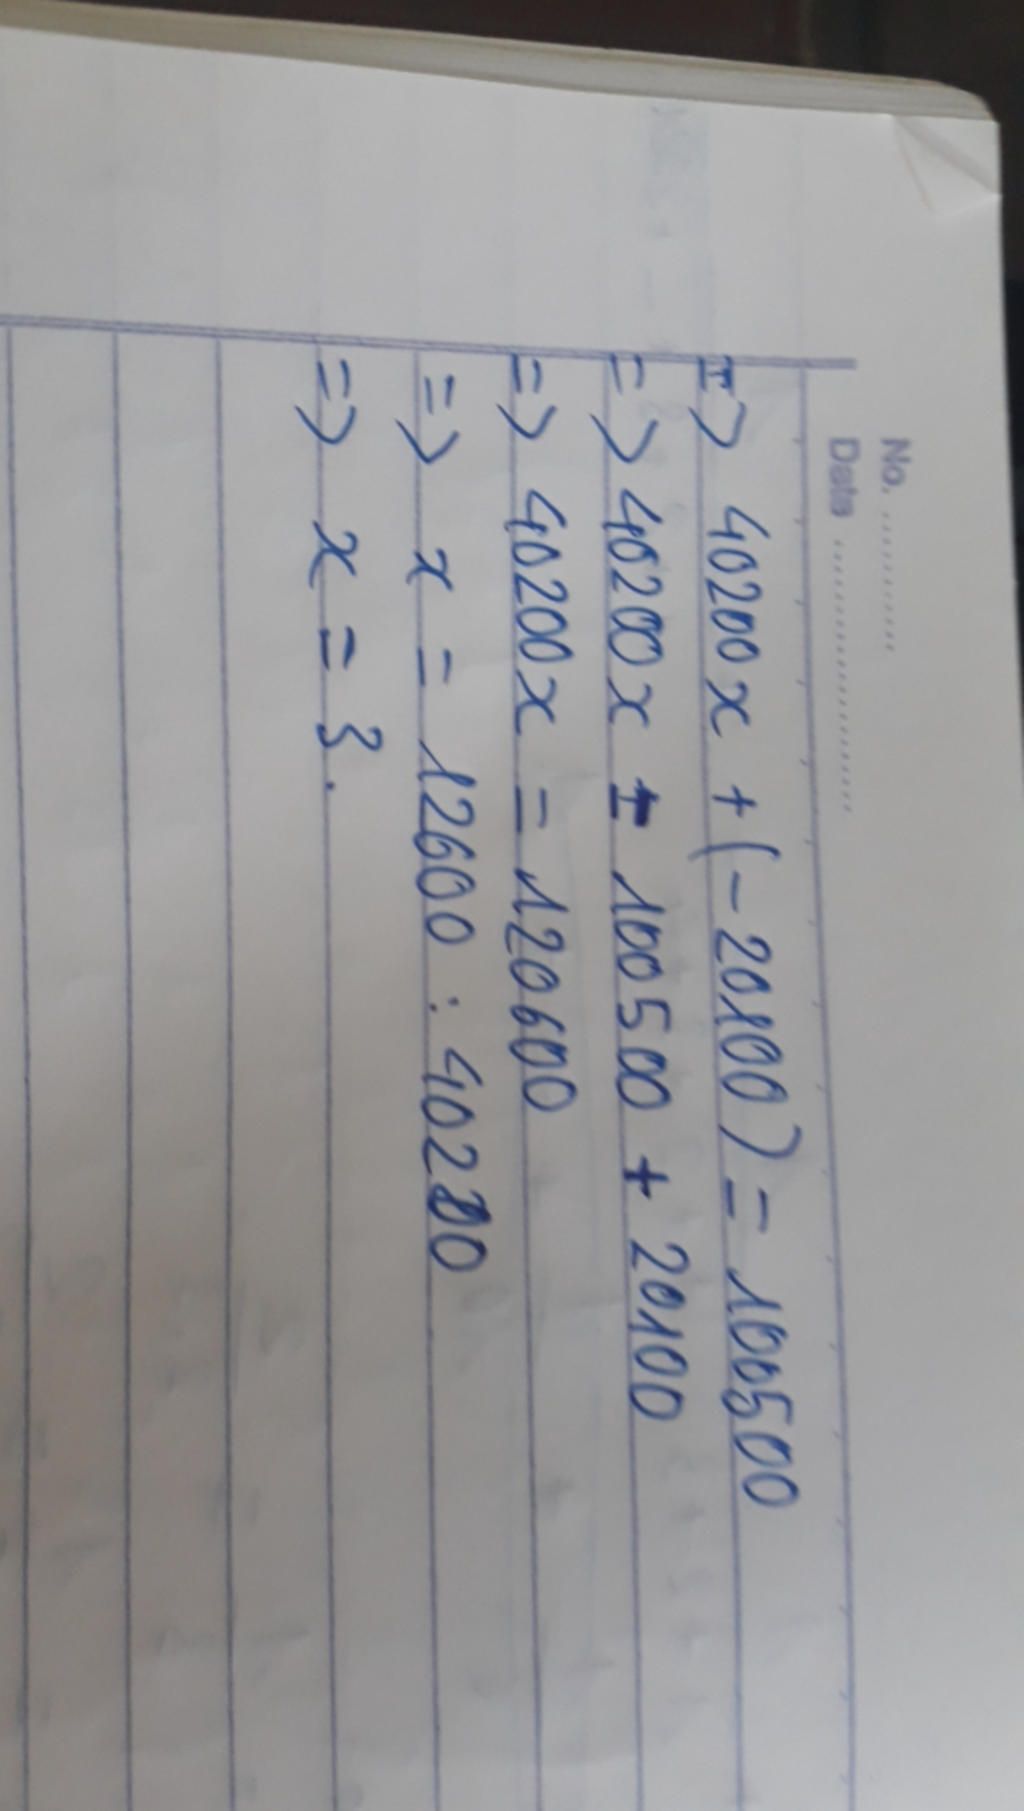 No. ............
Date ........................
=> 40200x + (-20100) = 100500
=> 40200x = 100500 + 20100
=> 40200x = 120600
=> x = 12600 : 40200
=> x = 3.